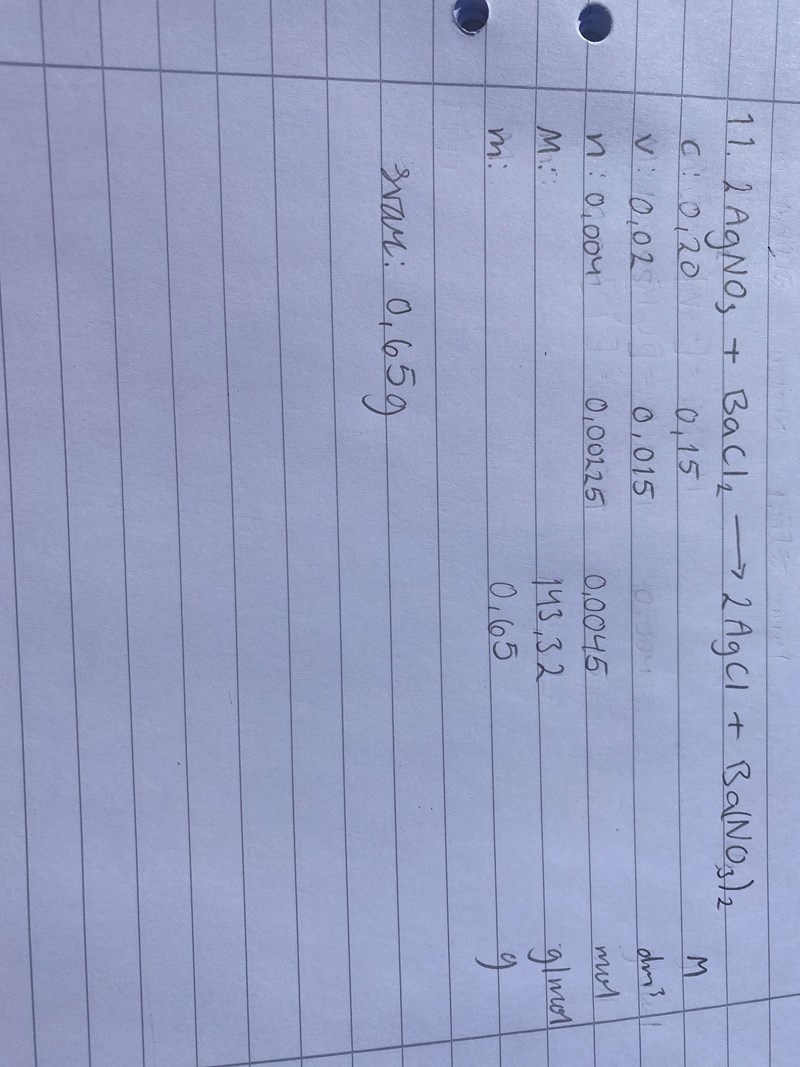 11. 2AgNO₃ + BaCl₂ → 2AgCl + Ba(NO₃)₂
c: 0,20 0,15 M
v: 0,02 0,015 dm³
n: 0,004 0,00225 0,0045 mol
M: 143,32 g/mol
m: 0,65 g
svar: 0,65g